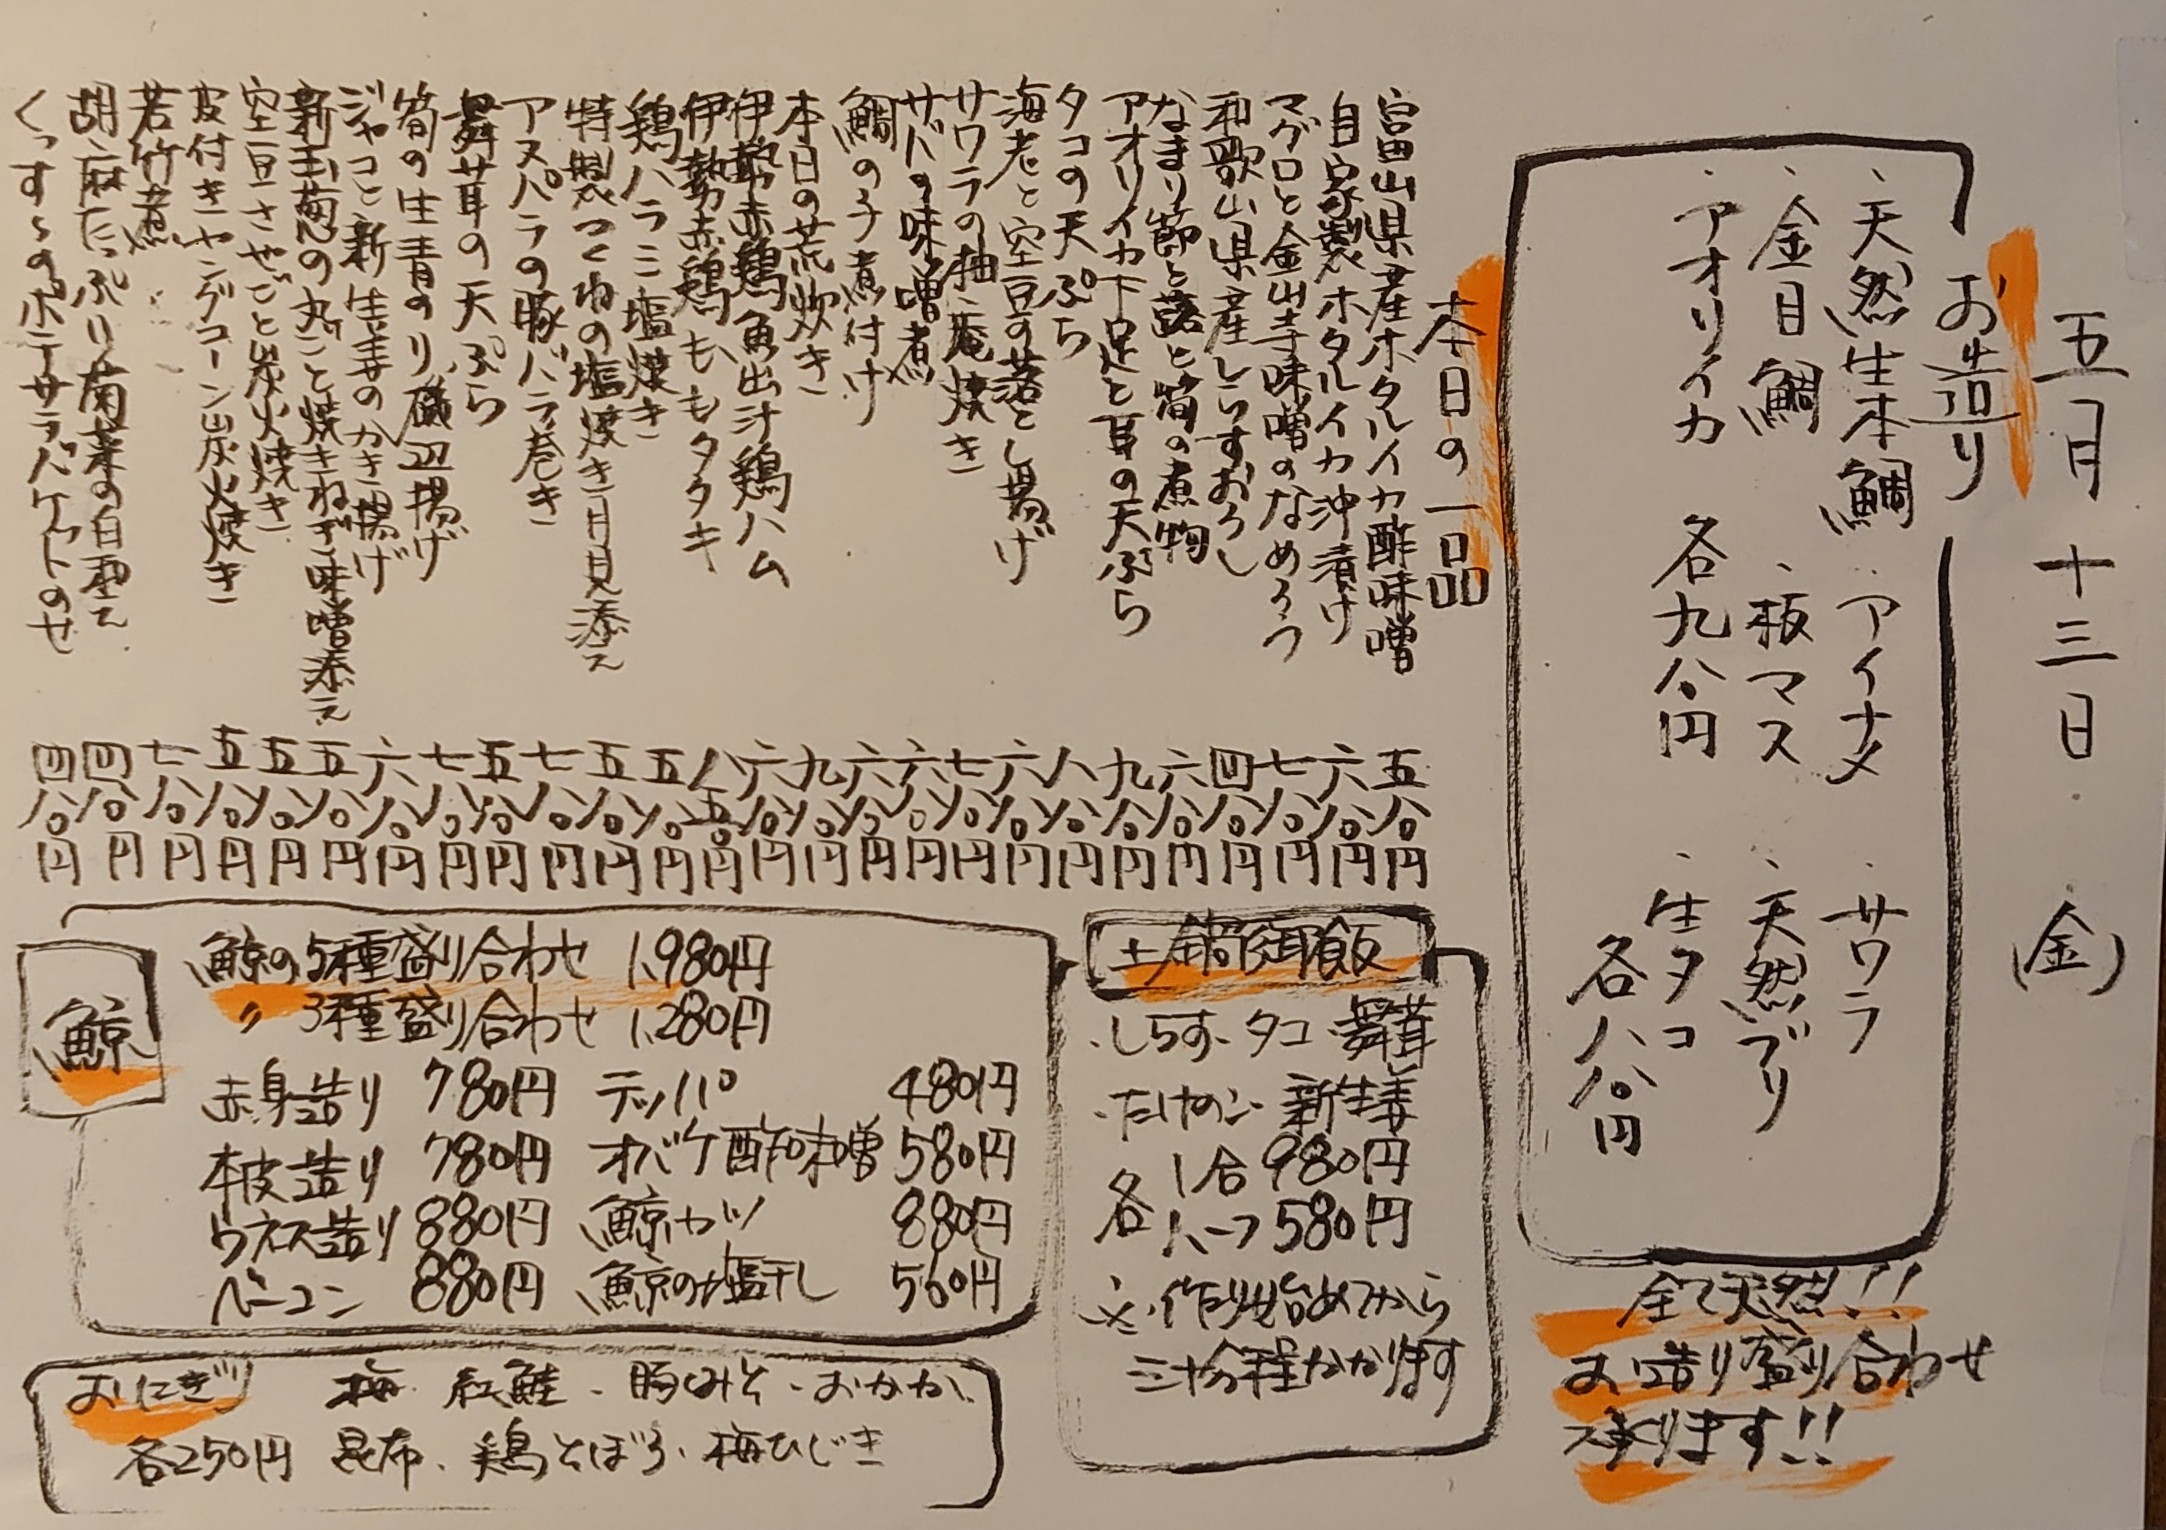 五月十三日(金)
お造り
・天然生本鯛 ・アイナメ ・サワラ
・金目鯛 ・板マス ・天然ブリ
・アオリイカ ・生タコ
各九八〇円 各八八〇円
全て天然!!
お造り盛り合わせ
承ります!!
本日の一品
富山県産ホタルイカ酢味噌 五八〇円
自家製ホタルイカ沖漬け 六八〇円
マグロと金山寺味噌のなめろう 七八〇円
和歌山県産しらすおろし 四八〇円
なまり節と蕗と筍の煮物 六八〇円
アオリイカ下足と耳の天ぷら 九八〇円
タコの天ぷら 八八〇円
海老と空豆の落とし揚げ 六八〇円
サワラの柚庵焼き 七八〇円
サバの味噌煮 六八〇円
鯛の子煮付け 六八〇円
本日の荒炊き 九八〇円
伊勢赤鶏魚出汁鶏ハム 六八〇円
伊勢赤鶏ももタタキ 八五〇円
鶏ハラミ塩焼き 五八〇円
特製つくねの塩焼き月見添え 五八〇円
アスパラの豚バラ巻き 七八〇円
舞茸の天ぷら 五八〇円
筍の生青のり磯辺揚げ 七八〇円
ジャコと新生姜のかき揚げ 六八〇円
新玉葱の丸ごと焼きねぎ味噌添え 五八〇円
空豆さやごと炭火焼き 五八〇円
皮付きヤングコーン炭火焼き 五八〇円
若竹煮 七八〇円
胡麻たっぷり菊菜の白和え 四八〇円
くっすゝのポテサラバケットのせ 四八〇円
土鍋御飯
・しらす・タコ・舞茸
・たけのこ・新生姜
各1合 980円
各ハーフ 580円
※作り始めてから
三十分程かかります
鯨
鯨の5種盛り合わせ 1,980円
〃 3種盛り合わせ 1,280円
赤身造り 780円 テッパ 480円
本皮造り 780円 オバケ酢味噌 580円
ウネス造り 880円 鯨カツ 880円
ベーコン 880円 鯨の塩干し 560円
おにぎり 梅・紅鮭・豚しみそ・おかか・
各250円 昆布・鶏そぼろ・梅ひじき